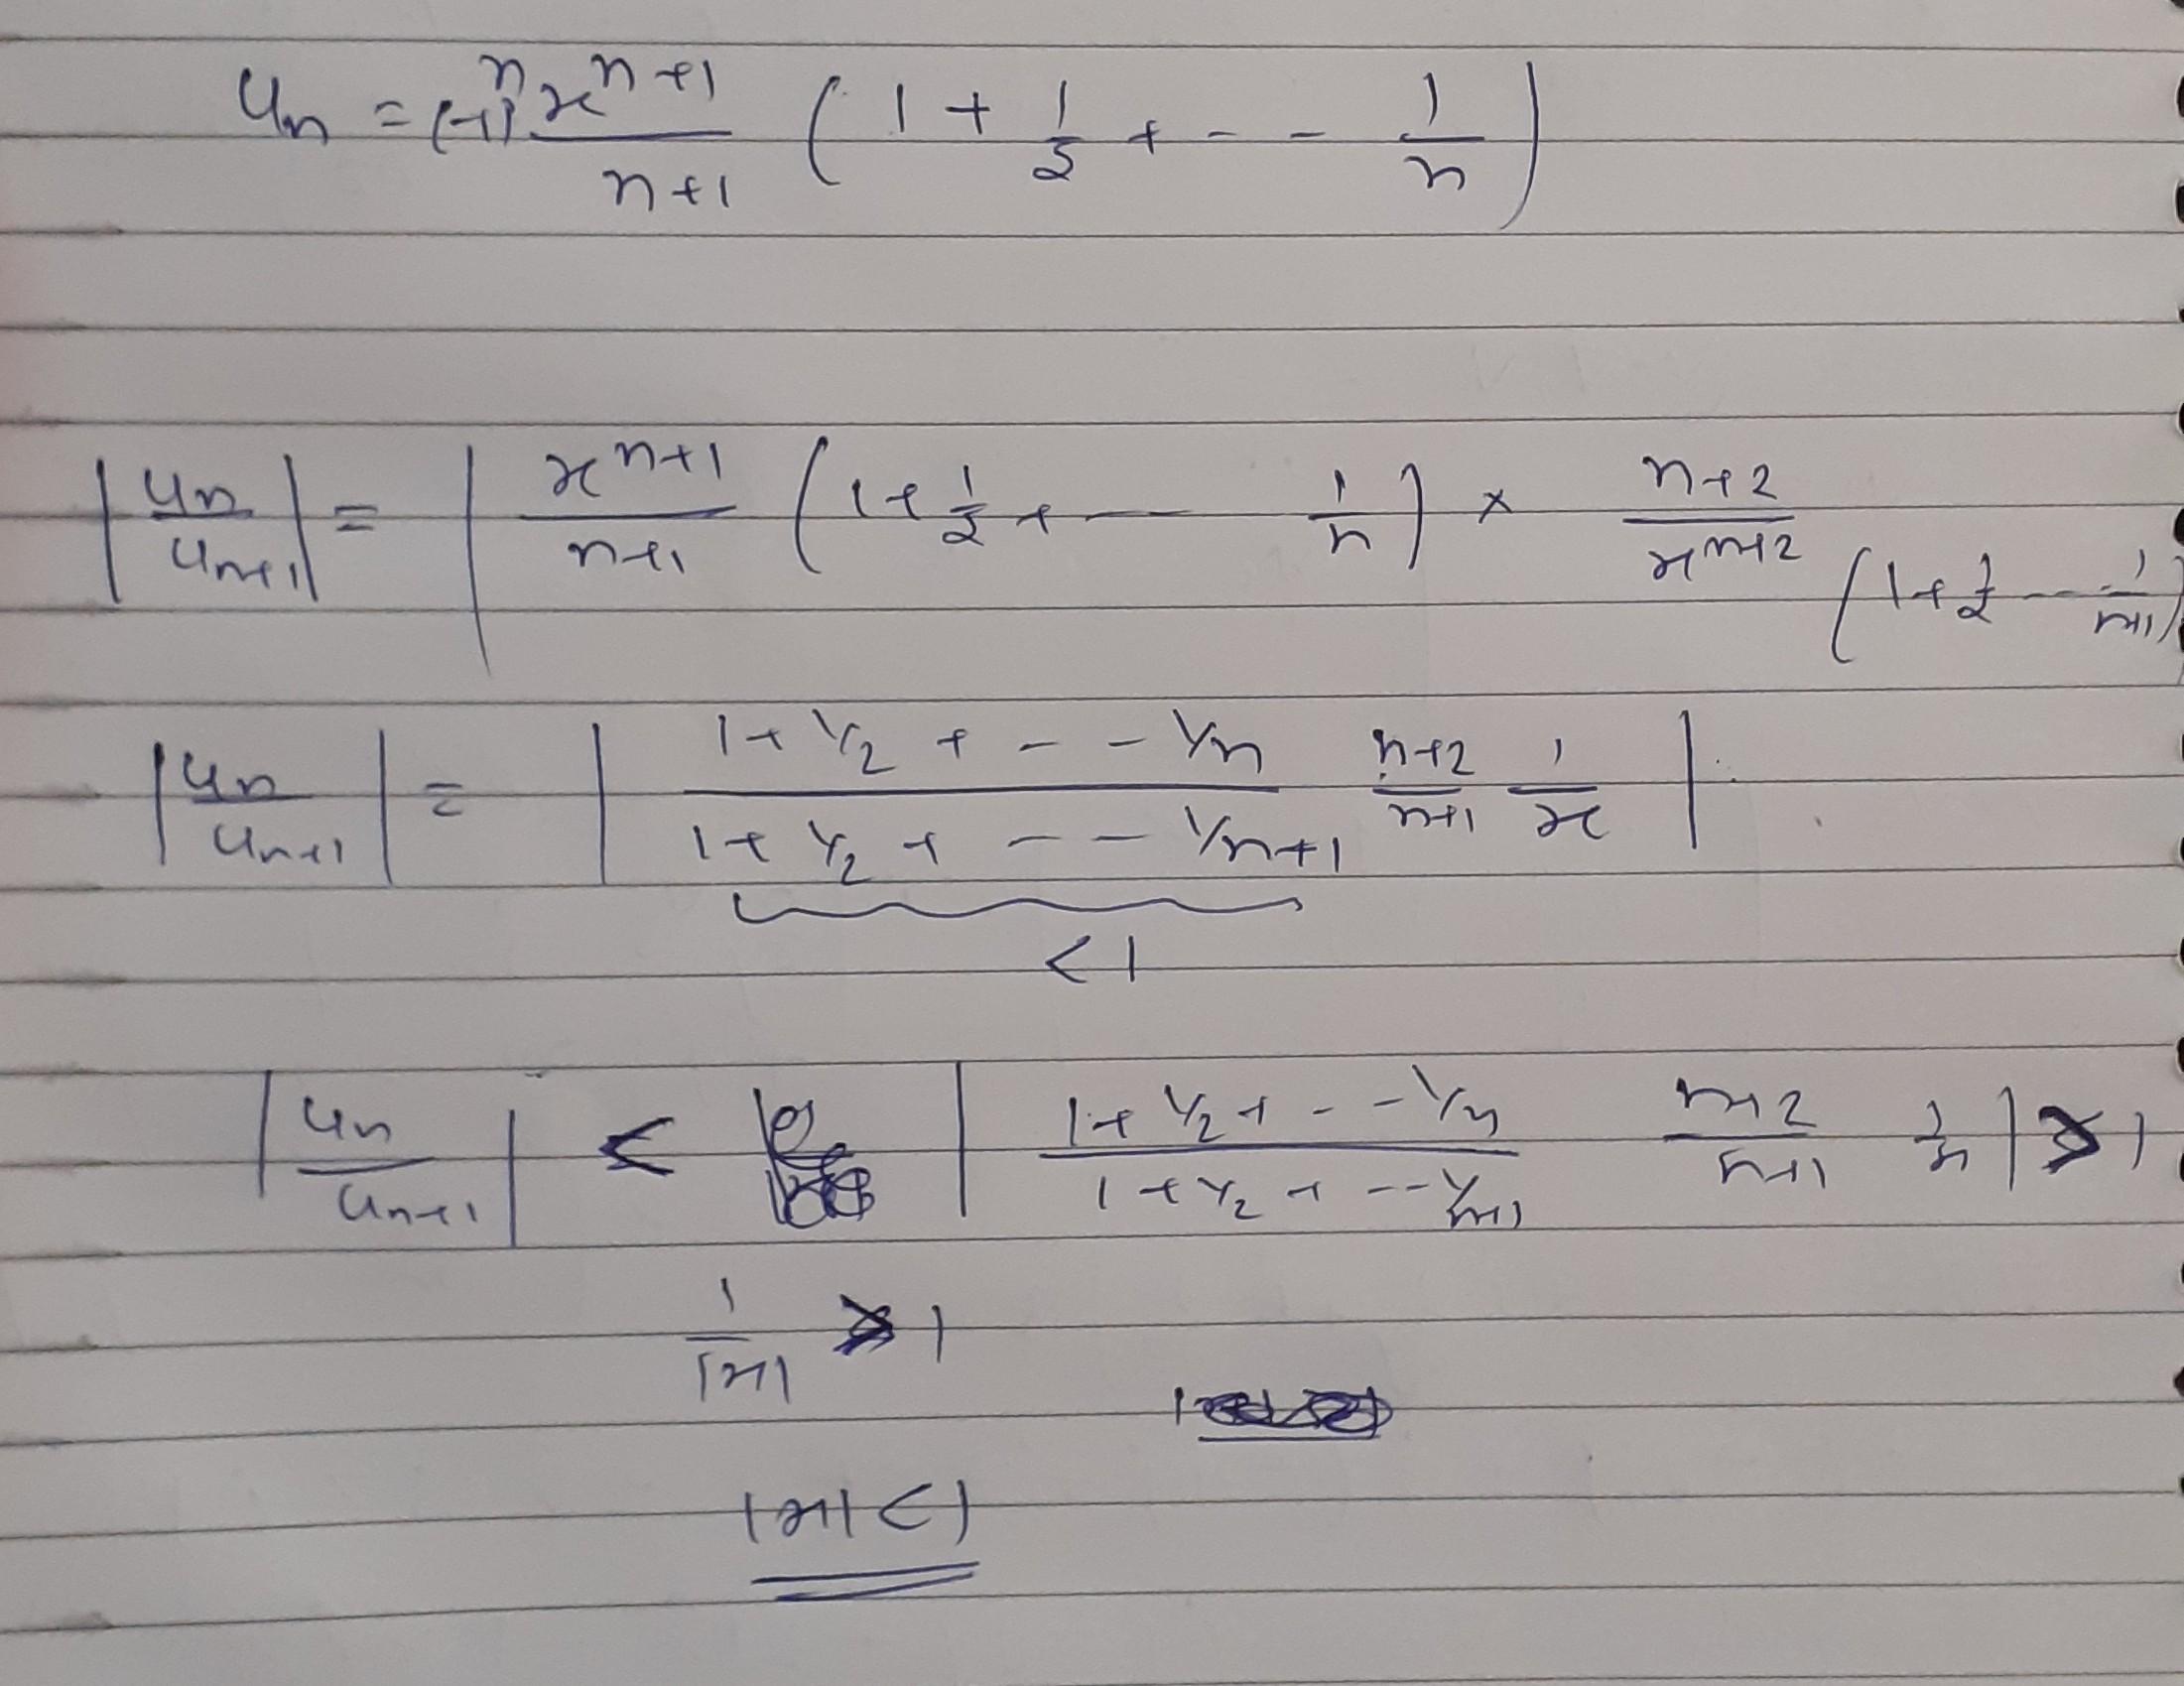 uₙ = (-1)ⁿ xⁿ⁺¹/n+1 ( 1 + 1/2 + - - 1/n )
|uₙ/uₙ₊₁| = | xⁿ⁺¹/n+1 ( 1 + 1/2 + - - 1/n ) × n+2/xⁿ⁺² (1 + 1/2 - - 1/n+1)
|uₙ/uₙ₊₁| = | 1 + 1/2 + - - 1/n / 1 + 1/2 + - - 1/n+1 n+2/n+1 1/x |
< 1
|uₙ/uₙ₊₁| < | 1 + 1/2 + - - 1/n / 1 + 1/2 + - - 1/n+1 n+2/n+1 1/x | > 1
1/|x| > 1
|x| < 1